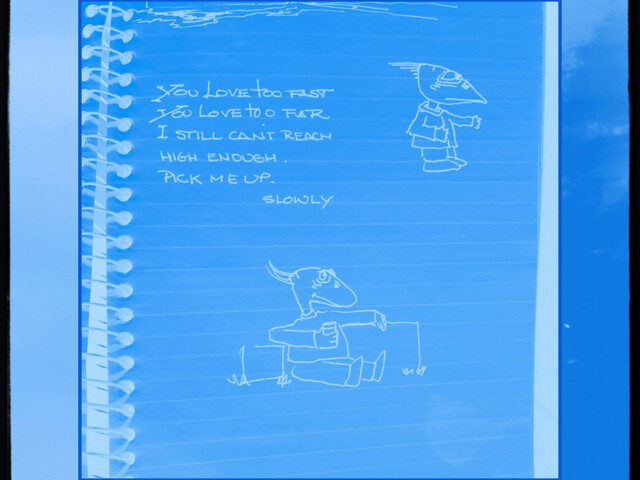 YOU LOVE TOO FAST
YOU LOVE TOO FAR
I STILL CAN'T REACH
HIGH ENOUGH.
PICK ME UP.
SLOWLY